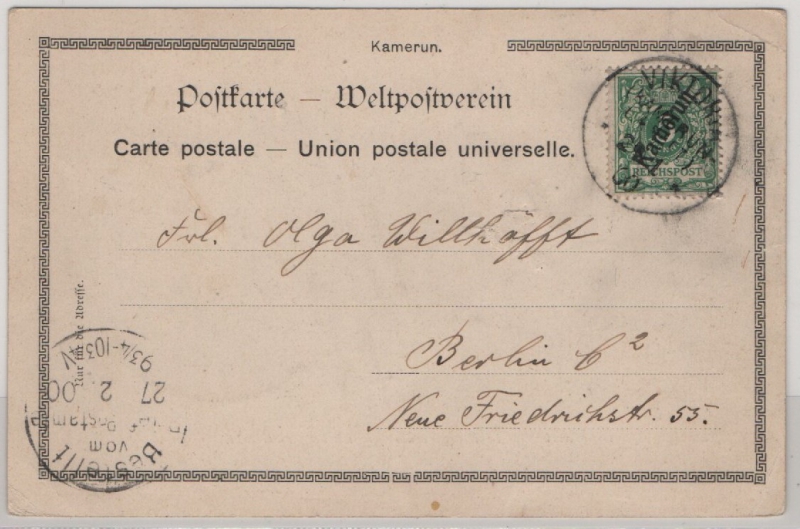 Kamerun.
Postkarte — Weltpostverein
Carte postale — Union postale universelle.
VIKTORIA
Kamerun
REICHSPOST
Frl. Olga Willhöfft
Nur für die Adresse.
Berlin C2
Neue Friedrichstr. 55.
Bestellt
vom
Postamte
27 2 00
93/4-103/4 V